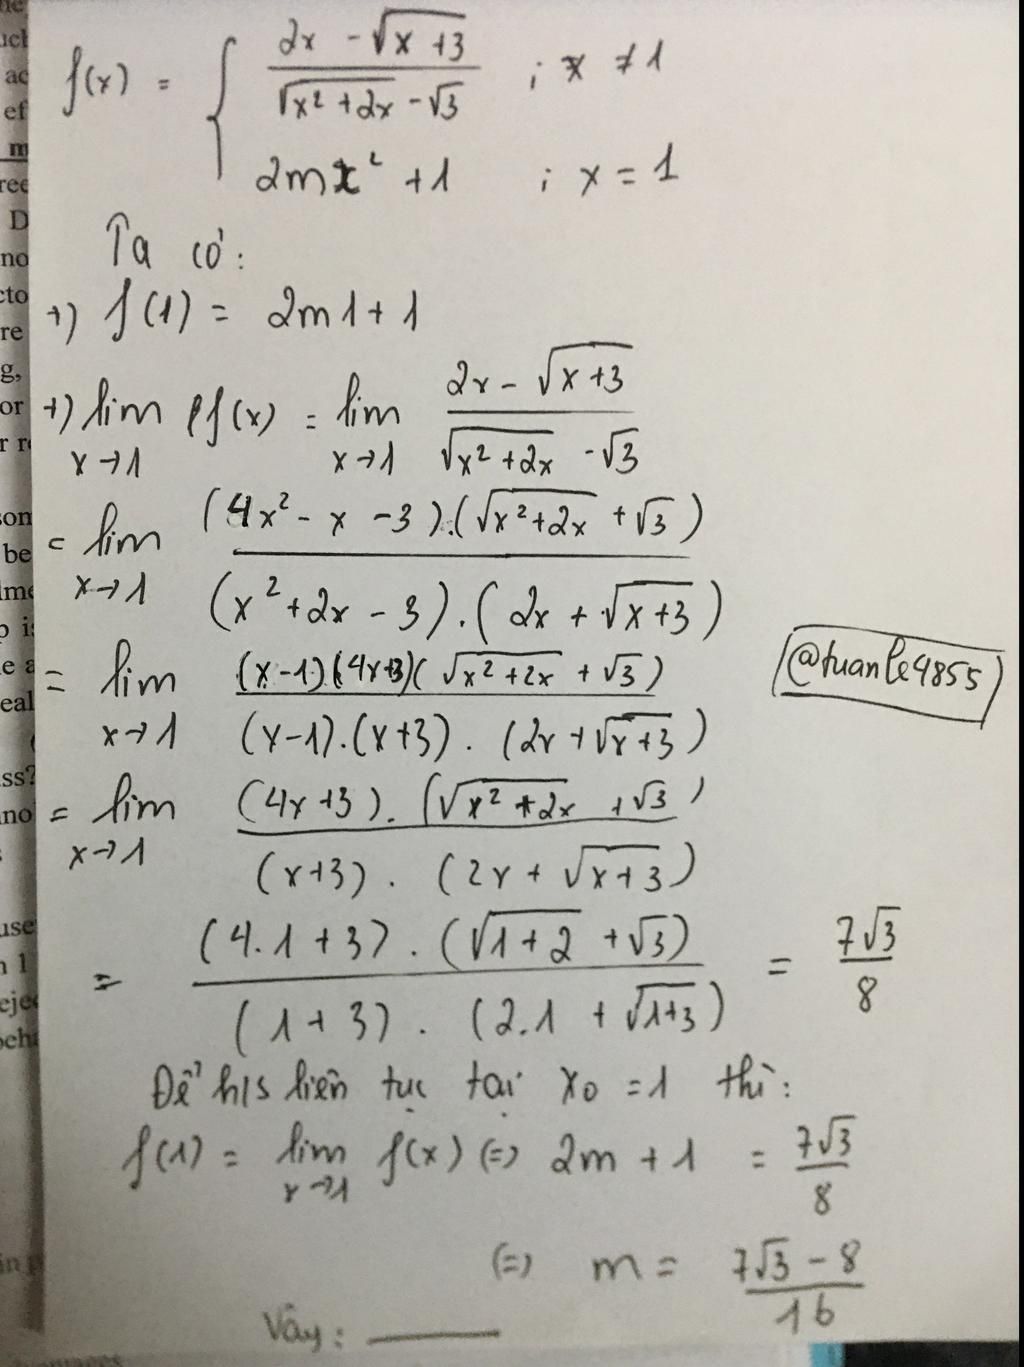 f(x) = { (2x - √(x+3)) / (√(x²+2x) - √3) ; x ≠ 1
2mx² + 1 ; x = 1
Ta có:
+) f(1) = 2m1 + 1
+) lim x→1 f(x) = lim x→1 (2x - √(x+3)) / (√(x²+2x) - √3)
= lim x→1 (4x² - x - 3).(√(x²+2x) + √3) / (x² + 2x - 3).(2x + √(x+3))
= lim x→1 (x-1)(4x+3)(√(x²+2x) + √3) / (x-1).(x+3).(2x + √(x+3))
@tuanle4855
= lim x→1 (4x+3).(√(x²+2x) + √3) / (x+3).(2x + √(x+3))
= (4.1+3).(√(1+2) + √3) / (1+3).(2.1 + √(1+3)) = 7√3 / 8
Để h/s liên tục tại x0 = 1 thì:
f(1) = lim x→1 f(x) (=) 2m + 1 = 7√3 / 8
(=) m = (7√3 - 8) / 16
Vậy: